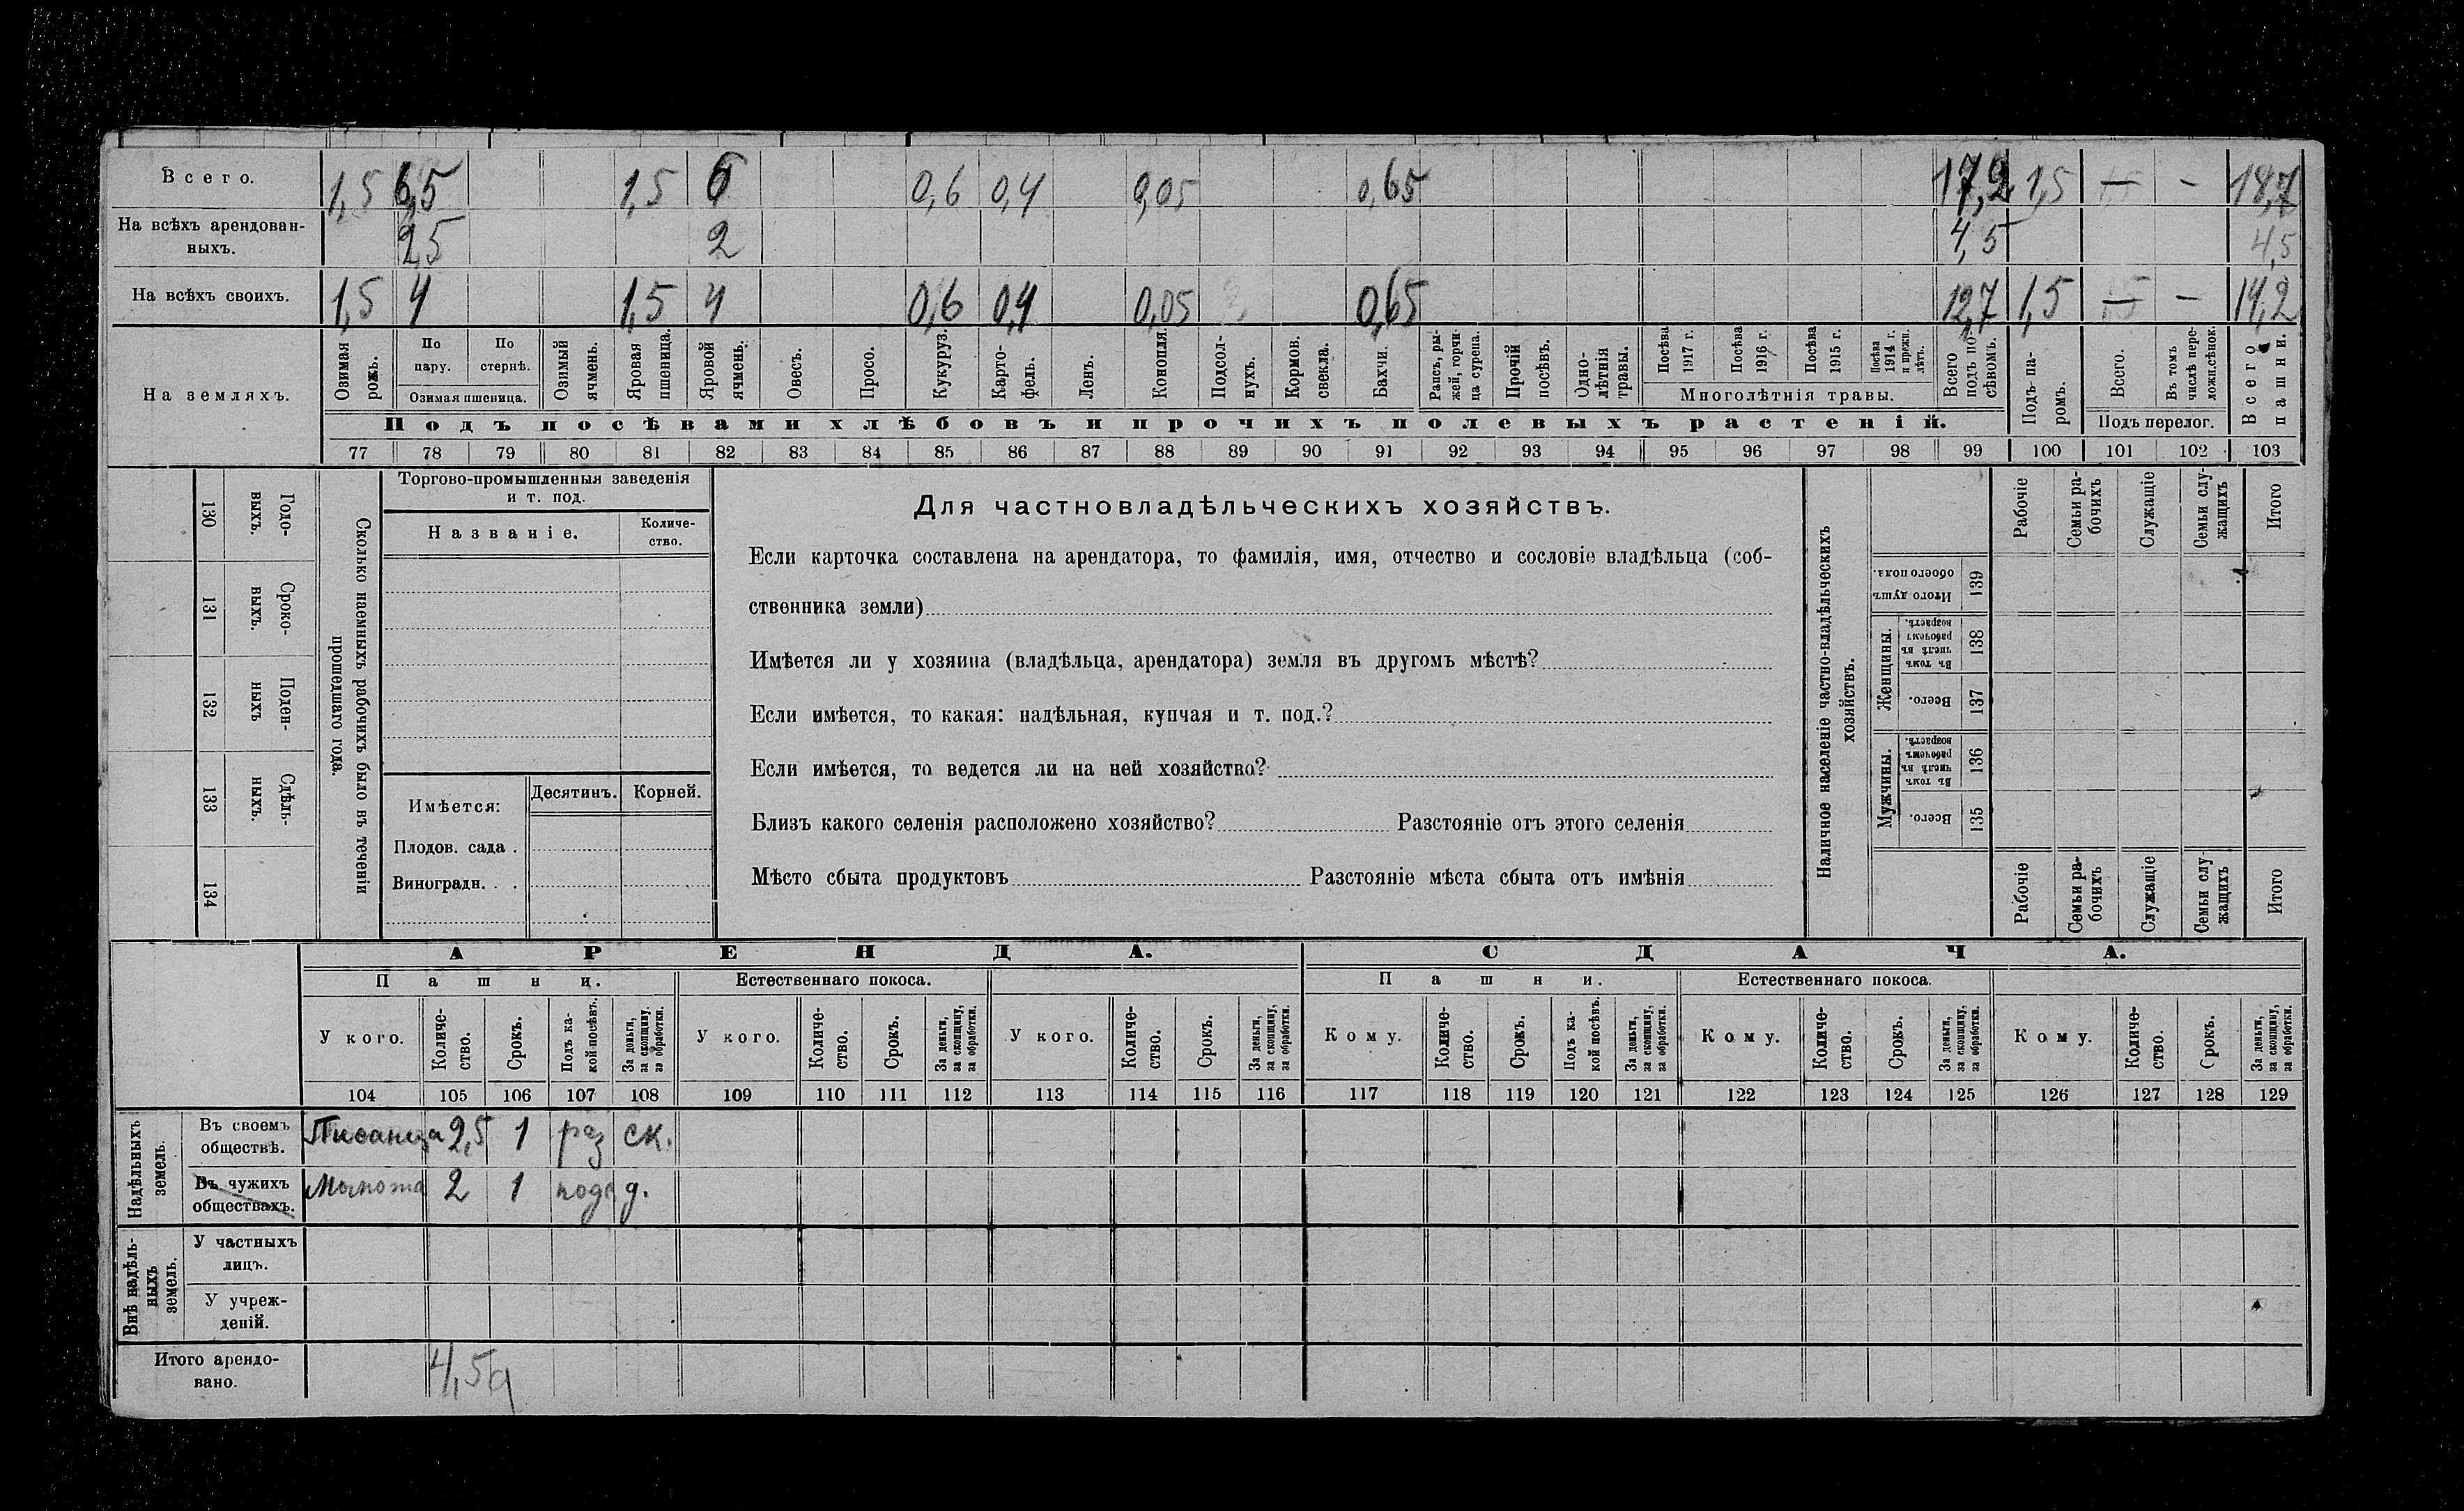 Всего. 1,5 6,5 1,5 6 0,6 0,4 0,05 0,65 17,2 1,5 — - 18,7
На всѣхъ арендован-
ныхъ. 2,5 2 4,5 4,5
На всѣхъ своихъ. 1,5 4 1,5 4 0,6 0,4 0,05 0,65 12,7 1,5 — - 14,2
На земляхъ.
Озимая рожь.
По пару.
По стернѣ.
Озимая пшеница.
Озимый ячмень.
Яровая пшеница.
Яровой ячмень.
Овесъ.
Просо.
Кукуруз.
Карто-
фель.
Ленъ.
Конопля.
Подсол-
нухъ.
Кормов.
свекла.
Бахчи.
Рапсъ, ры-
жей, горчи-
ца сурепа.
Прочій
посѣвъ.
Одно-
лѣтнія
травы.
Посѣва
1917 г.
Посѣва
1916 г.
Посѣва
1915 г.
Посѣва
1914 г.
и прежн.
лѣтъ.
Многолѣтнія травы.
Всего
подъ по-
сѣвомъ.
Подъ па-
ромъ.
Всего.
Въ томъ
числѣ пере-
ложн.сѣнок.
Подъ перелог.
Всего
пашни.
Подъ посѣвами хлѣбовъ и прочихъ полевыхъ растеній.
77 78 79 80 81 82 83 84 85 86 87 88 89 90 91 92 93 94 95 96 97 98 99 100 101 102 103
130 Годо-
выхъ.
131 Сроко-
ныхъ.
132 Поден-
ныхъ
133 Сдѣль-
ныхъ.
134
Сколько наемныхъ рабочихъ было въ теченіи
прошедшаго года.
Торгово-промышленныя заведенія
и т. под.
Названіе.
Количе-
ство.
Имѣется: Десятинъ. Корней.
Плодов. сада .
Виноградн. . .
Для частновладѣльческихъ хозяйствъ.
Если карточка составлена на арендатора, то фамилія, имя, отчество и сословіе владѣльца (соб-
ственника земли)
Имѣется ли у хозяина (владѣльца, арендатора) земля въ другомъ мѣстѣ?
Если имѣется, то какая: надѣльная, купчая и т. под.?
Если имѣется, то ведется ли на ней хозяйство?
Близъ какого селенія расположено хозяйство? Разстояніе отъ этого селенія
Мѣсто сбыта продуктовъ Разстояніе мѣста сбыта отъ имѣнія
Наличное населеніе частно-владѣльческихъ
хозяйствъ.
Рабочіе
Семьи ра-
бочихъ
Служащіе
Семьи слу-
жащихъ
Итого
Итого душъ
обоего пола.
139
Женщины.
Въ томъ
числѣ въ
рабочемъ
возрастѣ.
138
Всего.
137
Мужчины.
Въ томъ
числѣ въ
рабочемъ
возрастѣ.
136
Всего.
135
Рабочіе
Семьи ра-
бочихъ
Служащіе
Семьи слу-
жащихъ
Итого
АРЕНДА. СДАЧА.
Пашни. Естественнаго покоса. Пашни. Естественнаго покоса.
У кого.
Количе-
ство.
Срокъ.
Подъ ка-
кой посѣвъ.
За деньги,
за скопщину,
за обработки.
У кого.
Количе-
ство.
Срокъ.
За деньги,
за скопщину,
за обработки.
У кого.
Количе-
ство.
Срокъ.
За деньги,
за скопщину,
за обработки.
Кому.
Количе-
ство.
Срокъ.
Подъ ка-
кой посѣвъ.
За деньги,
за скопщину,
за обработки.
Кому.
Количе-
ство.
Срокъ.
За деньги,
за скопщину,
за обработки.
Кому.
Количе-
ство.
Срокъ.
За деньги,
за скопщину,
за обработки.
104 105 106 107 108 109 110 111 112 113 114 115 116 117 118 119 120 121 122 123 124 125 126 127 128 129
Надѣльныхъ
земель.
Въ своемъ
обществѣ. Писанца 2,5 1 раз ск.
Въ чужихъ
обществахъ. 2 1 д.
Внѣ надѣль-
ныхъ
земель.
У частныхъ
лицъ.
У учреж-
деній.
Итого арендо-
вано. 4,5